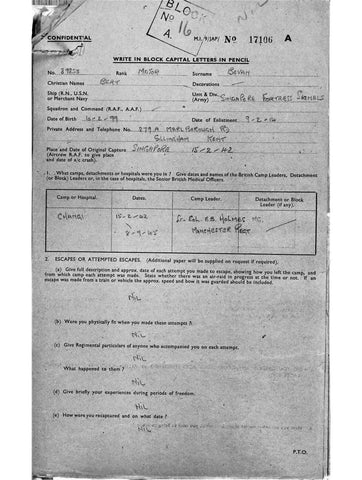 BLOCK
No 16
A.
NIL
CONFIDENTIAL
M.I.9/JAP/ No 17106 A
WRITE IN BLOCK CAPITAL LETTERS IN PENCIL
No. Rank MAJOR Surname BEVAN
Christian Names BERT Decorations
Ship (R.N., U.S.N. or Merchant Navy Unit & Div. (Army) SINGAPORE FORTRESS SIGNALS
Squadron and Command (R.A.F., A.A.F.)
Date of Birth Date of Enlistment 9-2-14
Private Address and Telephone No. 279A MARLBOROUGH RD
GILLINGHAM KENT
Place and Date of Original Capture SINGAPORE 15-2-42
(Aircrew R.A.F. to give place
and date of a/c crash).
1. What camps, detachments or hospitals were you in? Give dates and names of the British Camp Leaders, Detachment
(or Block) Leaders or, in hospitals, the Senior British Medical Officers.
Camp or Hospital. Dates. Camp Leader. Detachment or Block Leader (if any).
CHANGI 15-2-42 Lt. Col. E.B. HOLMES MC.
8-9-45 MANCHESTER REGT
2. ESCAPES or ATTEMPTED ESCAPES. (Additional paper will be supplied on request if required).
(a) Give full description and approx. date of each attempt you made to escape, showing how you left the camp, and
from which camp each attempt was made. State whether there was an air-raid in progress at the time or not. If an
escape was made from a train or vehicle the approx. speed and how it was guarded should be included.
NIL
(b) Were you physically fit when you made these attempts?
NIL
(c) Give Regimental particulars of anyone who accompanied you on each attempt.
NIL
What happened to them?
NIL
(d) Give briefly your experiences during periods of freedom.
NIL
(e) How were you recaptured and on what date?
NIL
P.T.O.